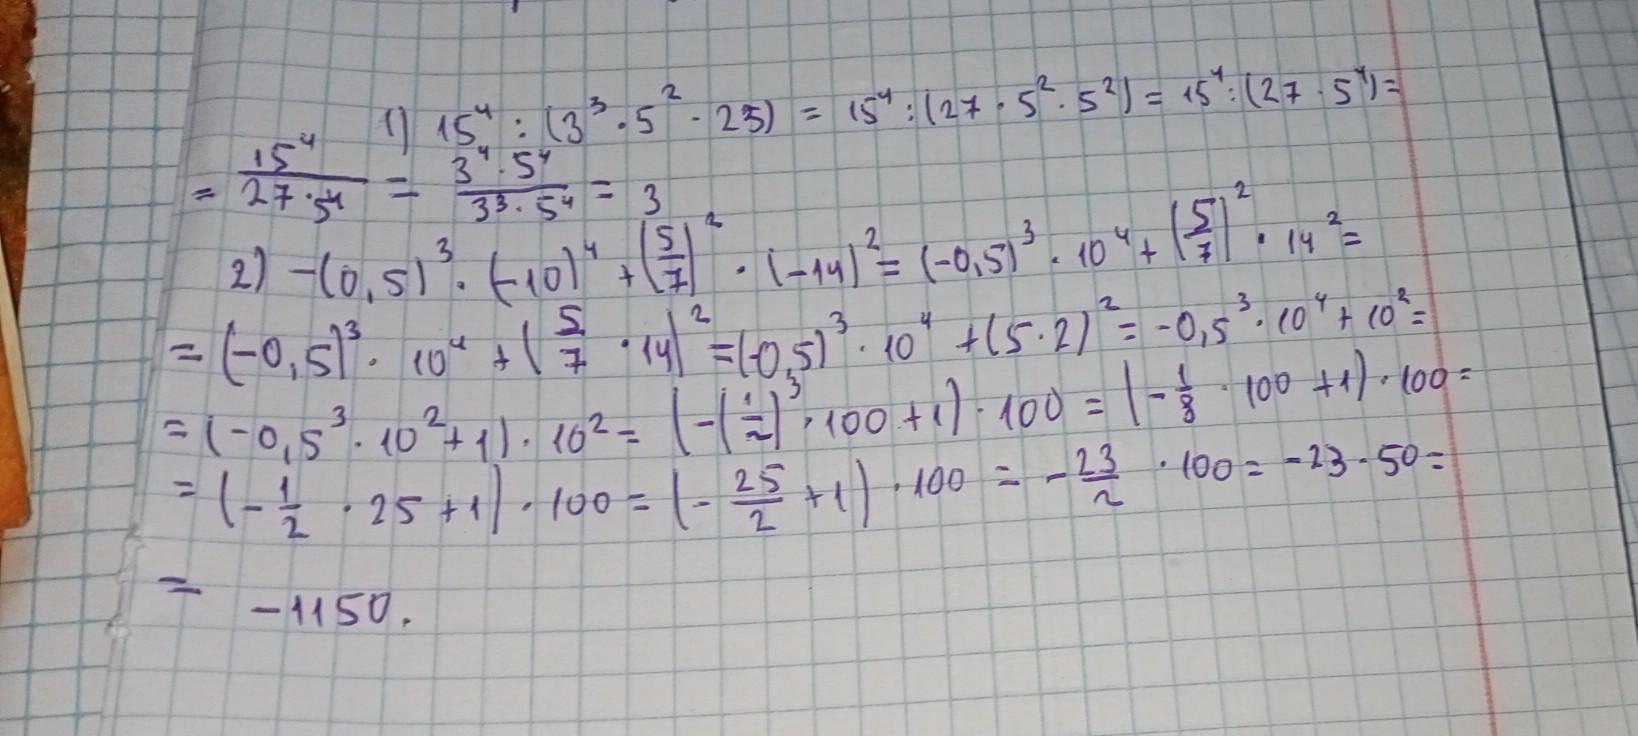 1) 15⁴ : (3³ · 5² · 25) = 15⁴ : (27 · 5² · 5²) = 15⁴ : (27 · 5⁴) =
= 15⁴/(27 · 5⁴) = (3⁴ · 5⁴)/(3³ · 5⁴) = 3
2) -(0,5)³ · (-10)⁴ + (5/7)² · (-14)² = (-0,5)³ · 10⁴ + (5/7)² · 14² =
= (-0,5)³ · 10⁴ + (5/7 · 14)² = (-0,5)³ · 10⁴ + (5 · 2)² = -0,5³ · 10⁴ + 10² =
= (-0,5³ · 10² + 1) · 10² = (-(1/2)³ · 100 + 1) · 100 = (-1/8 · 100 + 1) · 100 =
= (-1/2 · 25 + 1) · 100 = (-25/2 + 1) · 100 = -23/2 · 100 = -23 · 50 =
= -1150.